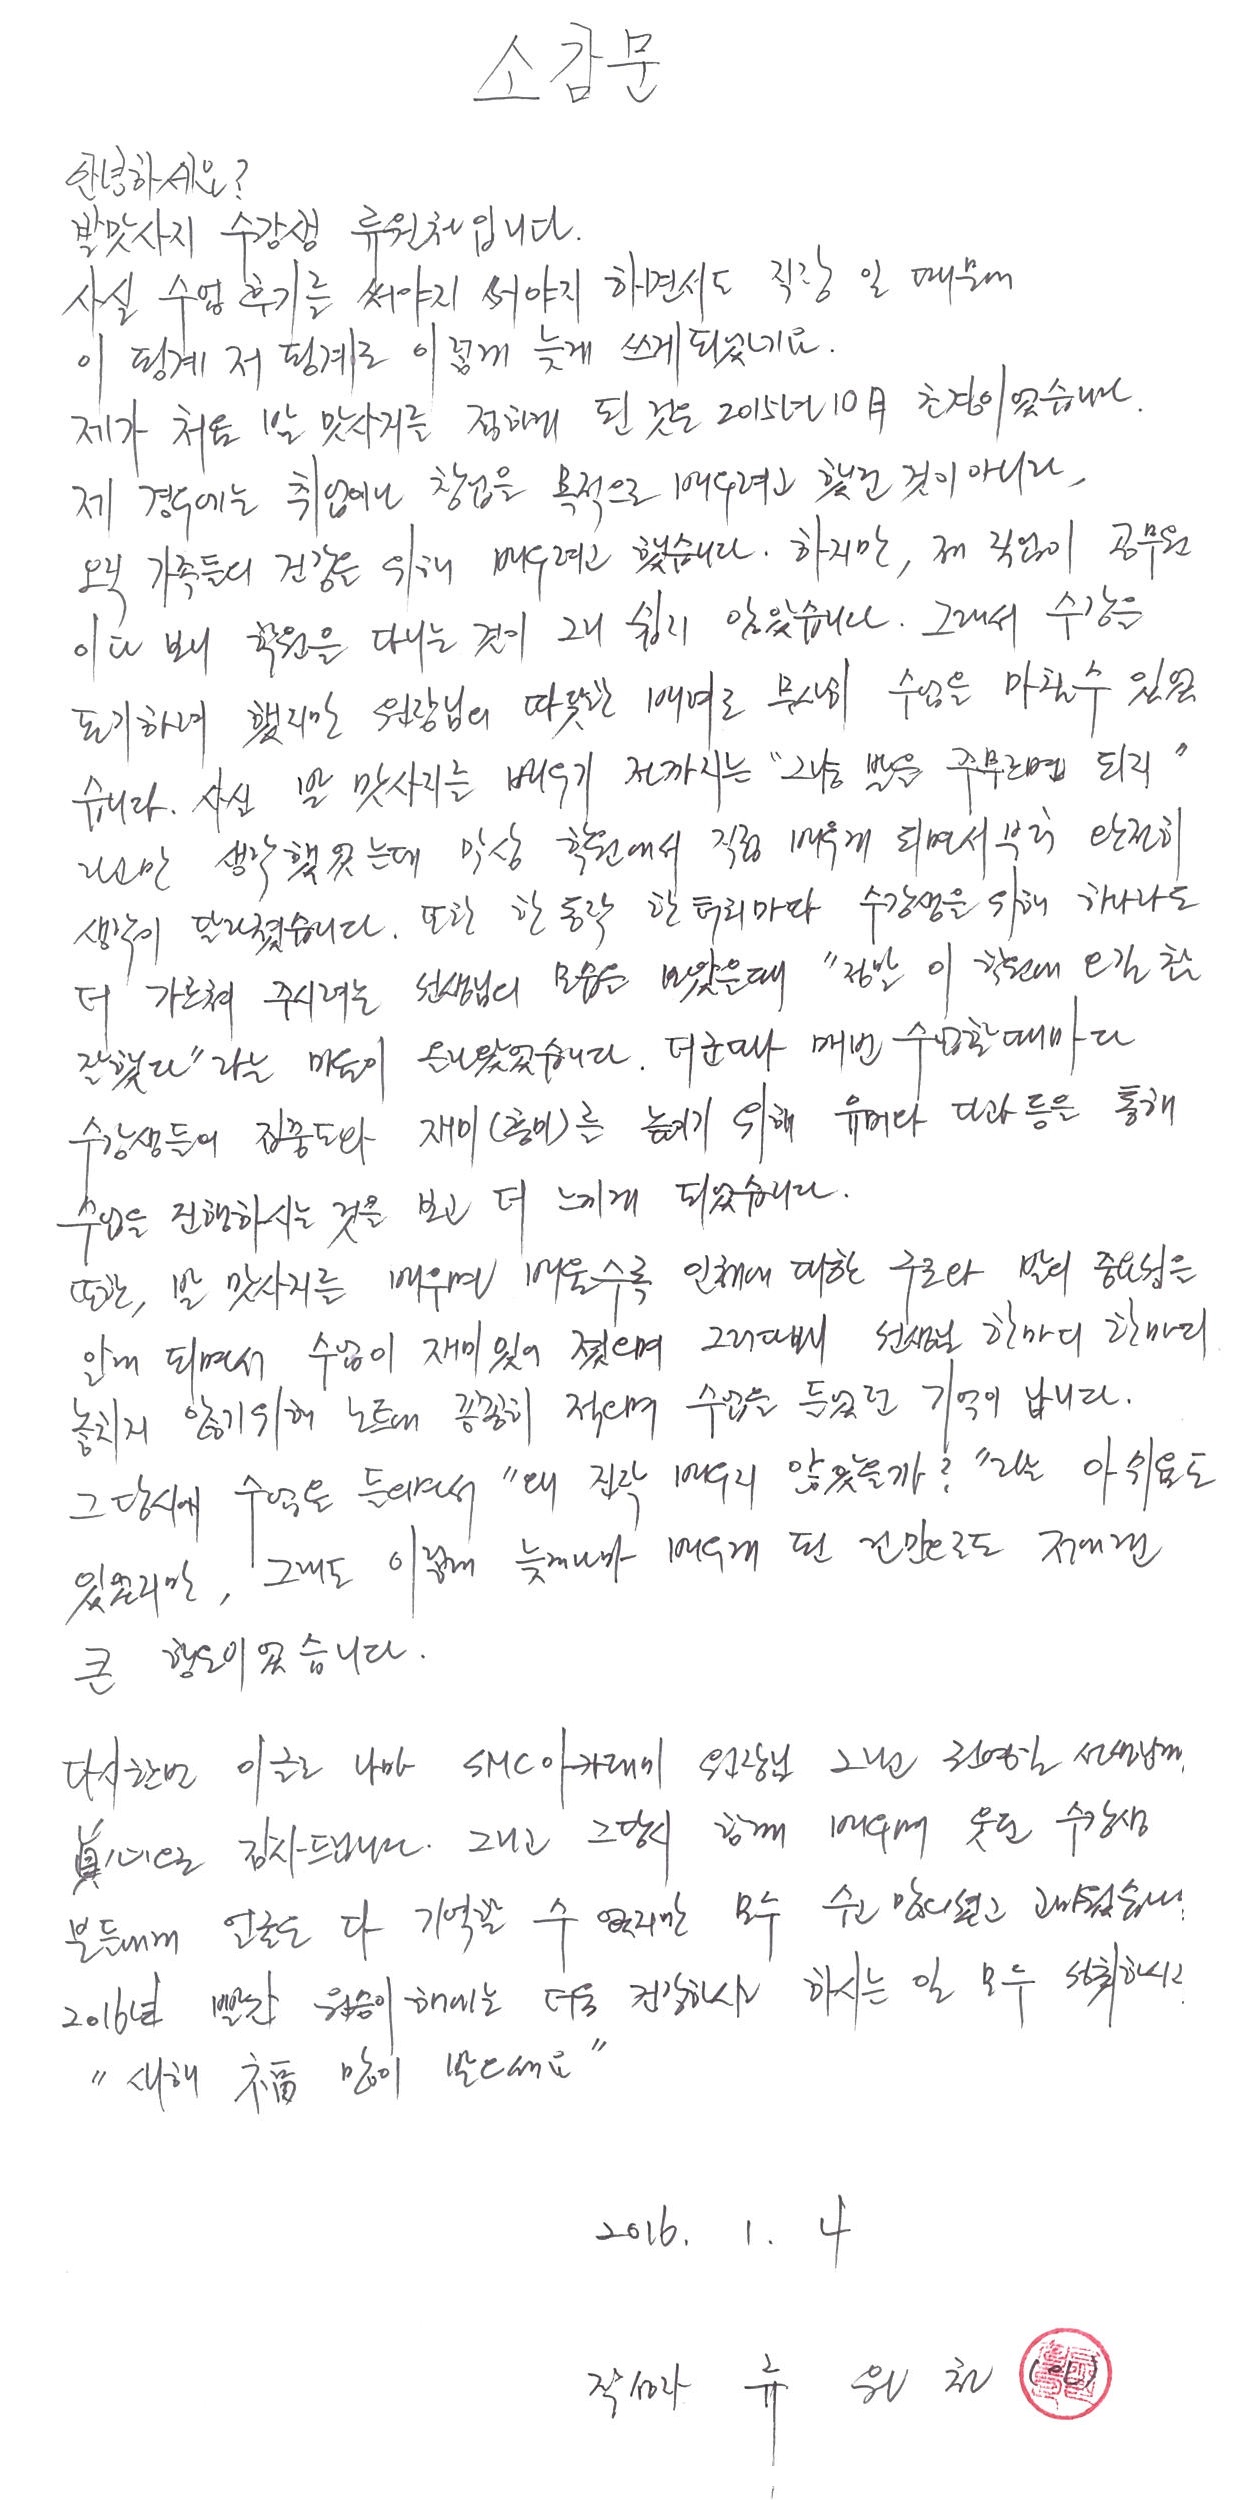 소감문
안녕하세요?
발맛사지 수강생 류원천입니다.
사실 수업 후기를 써야지 써야지 하면서도 직장 일 때문에
이 핑계 저 핑계로 이렇게 늦게 쓰게되었네요.
제가 처음 발 맛사지를 접하게 된 것은 2015년 10月 초경이었습니다.
제 경우에는 취업이나 창업을 목적으로 배우려고 했던 것이 아니라,
오직 가족들의 건강을 위해 배우려고 했습니다. 하지만, 제 직업이 공무원
이다 보니 학원을 다니는 것이 그리 쉽지 않았습니다. 그래서 수강을
포기하려 했지만 원장님의 따뜻한 배려로 무사히 수업을 마칠수 있었
습니다. 사실 발 맛사지를 배우기 전까지는 "그냥 발을 주무르면 되지"
라고만 생각했었는데 막상 학원에서 직접 배우게 되면서부터 완전히
생각이 달라졌습니다. 또한 한 동작 한 터치마다 수강생을 위해 하나라도
더 가르쳐 주시려는 선생님의 모습을 보았을때 "정말 이 학원에 오길 참
잘했다"라는 마음이 들었었습니다. 더군다나 매번 수업할때마다
수강생들의 집중도와 재미(흥미)를 높여기 위해 유머와 다과 등을 통해
수업을 진행하시는 것을 보고 더 느끼게 되었습니다.
또한, 발 맛사지를 배우며 배울수록 인체에 대한 구조와 발의 중요성을
알게 되면서 수업이 재미있어 졌으며 그러다보니 선생님 한마디 한마디
놓치지 않기위해 노트에 꼼꼼히 적으며 수업을 들었던 기억이 납니다.
그 당시에 수업을 들으면서 "왜 진작 배우지 않았을까?"라는 아쉬움도
있었지만, 그래도 이렇게 늦게나마 배우게 된 것만으로도 저에겐
큰 행운이었습니다.
다시한번 이글로 나마 SMC아카데미 원장님 그리고 전영림 선생님께
眞心으로 감사드립니다. 그리고 그당시 함께 배우며 웃던 수강생
분들에게 얼굴도 다 기억할 수 없지만 모두 수고 많으셨고 고마웠습니다.
2016년 빨간 원숭이해에는 더욱 건강하시고 하시는 일 모두 성취하시고
"새해 福 많이 받으세요"
2016. 1. 4
작성자 류 원 천 (인)